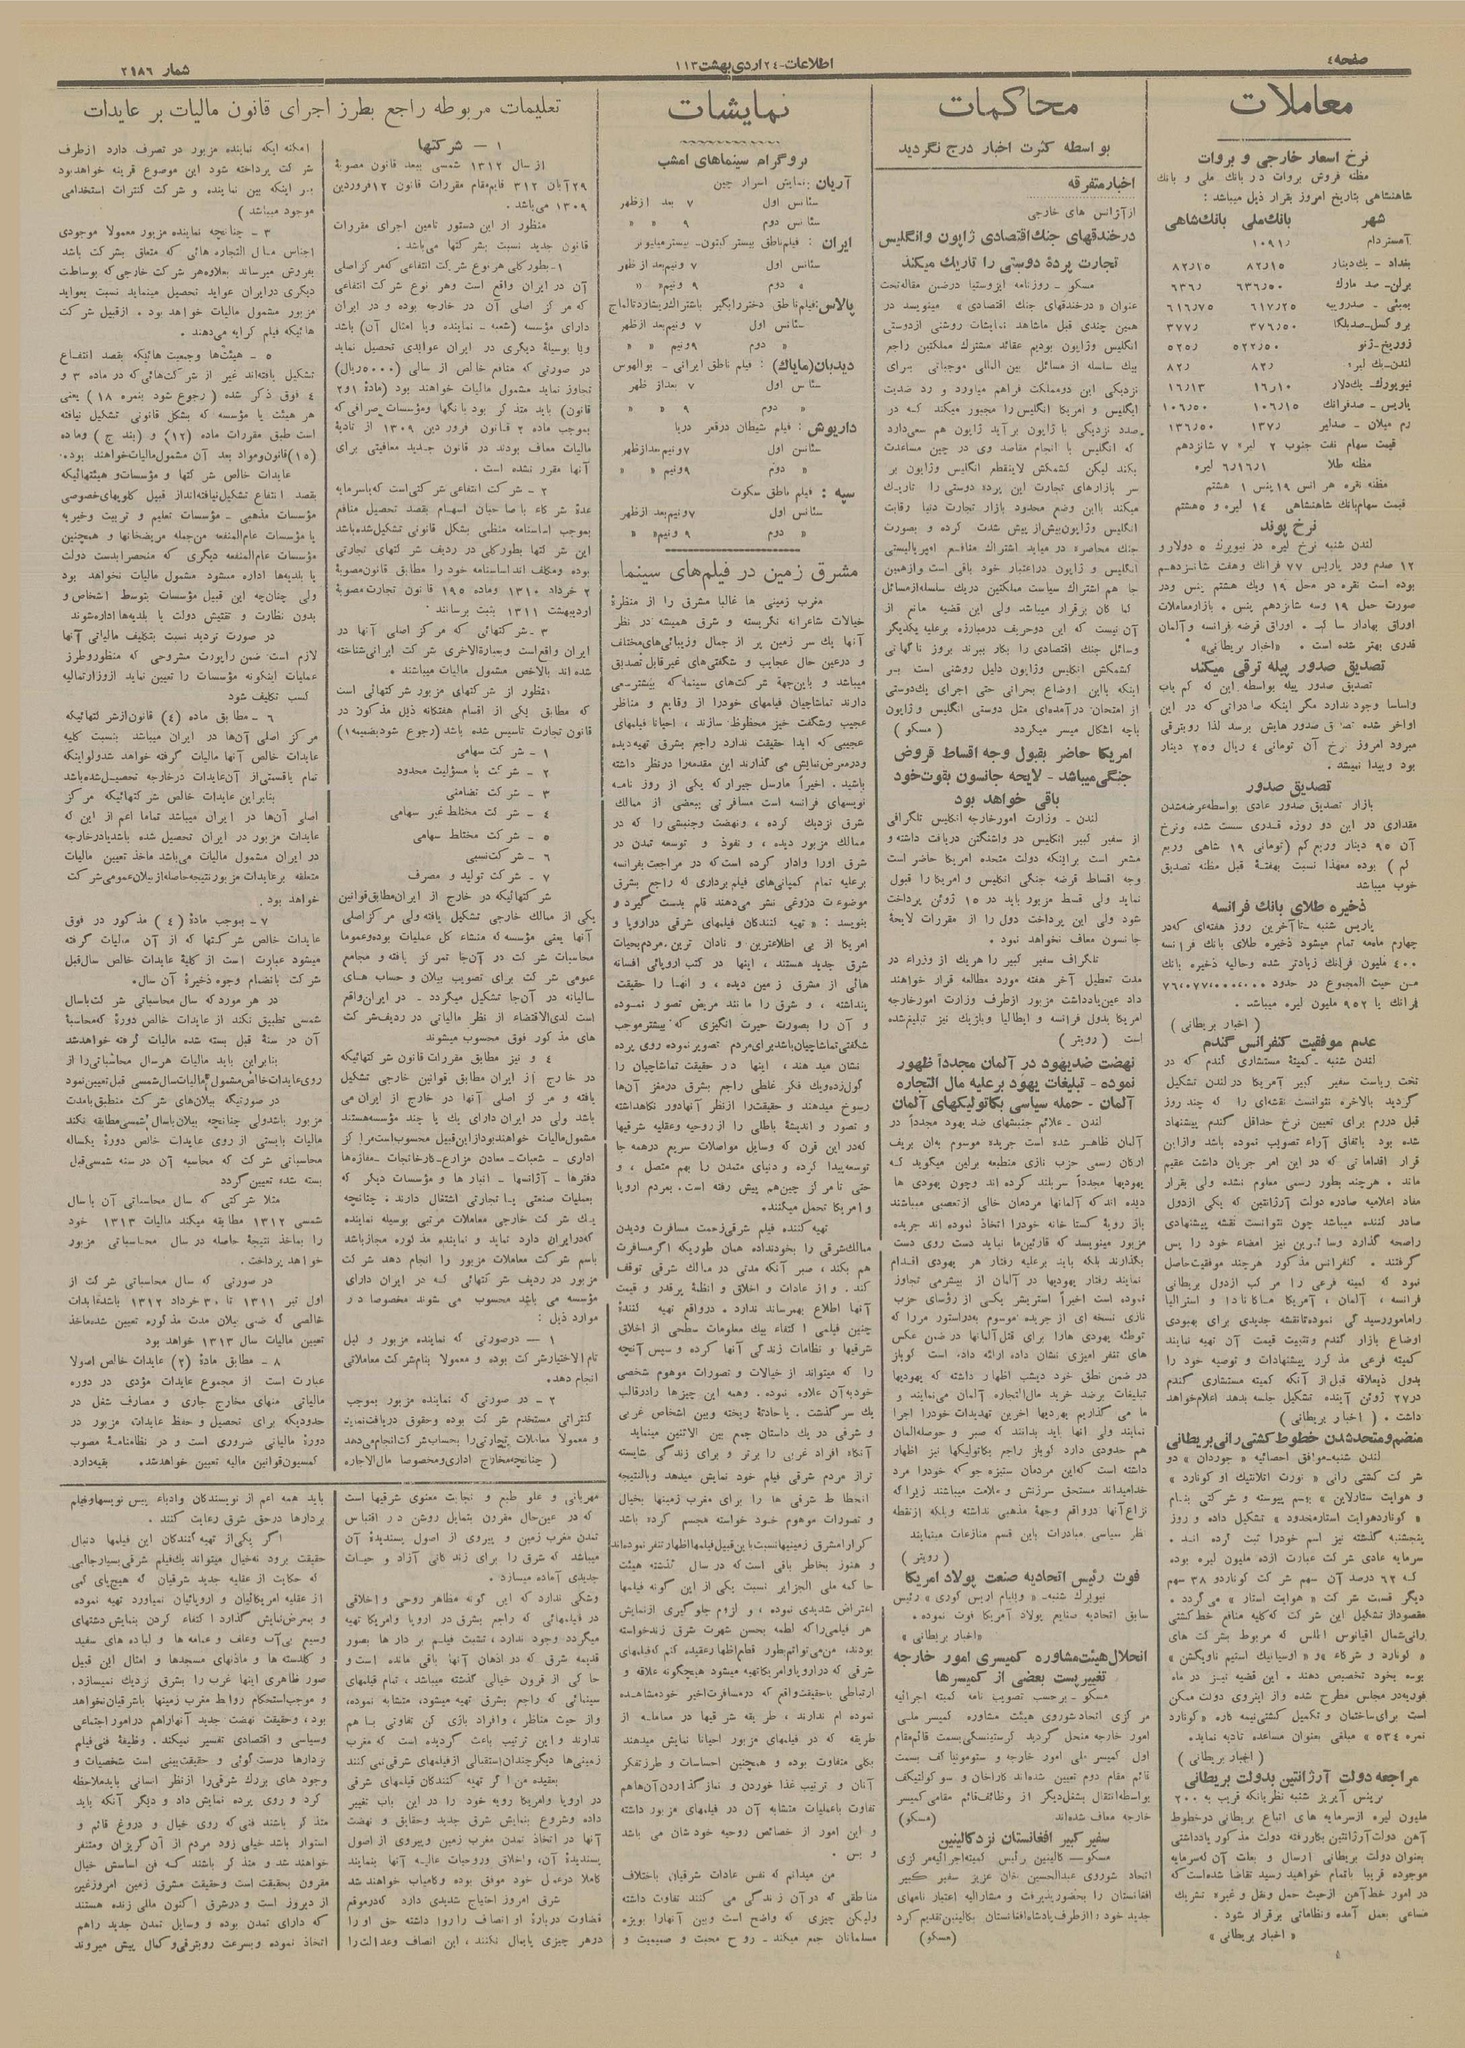 صفحه ٤
اطلاعات - ٢٤ اردی بهشت ١١٣
شمار ٢١٨٦
معاملات
نرخ اسعار خارجی و بروات
مظنه فروش بروات در بانك ملی و بانك
شاهنشاهی بتاریخ امروز بقرار ذیل میباشد :
شهر بانك ملی بانك شاهی
آمستردام ١٠٩١٫
بغداد - یك دینار ٨٢٫١٥ ٨٢٫١٥
برلن - صد مارك ٦٣٦٫٥٠ ٦٣٦٫
بمبئی - صدروپیه ٦١٧٫٢٥ ٦١٦٫٧٥
بروکسل - صدبلگا ٣٧٦٫٥٠ ٣٧٧٫
زوریخ - ژنو ٥٢٢٫٥٠ ٥٢٥٫
لندن - یك لیره ٨٢٫ ٨٢٫
نیویورك - یك دلار ١٦٫١٠ ١٦٫١٣
پاریس - صدفرانك ١٠٦٫١٥ ١٠٦٫٥٠
رم میلان - صدلیر ١٣٧٫ ١٣٦٫٥٠
قیمت سهام نفت جنوب ٢ لیره ٧ شانزدهم
مظنه طلا ٦٫١٦٫١ لیره
مظنه نقره هر انس ١٩ پنس ١ هشتم
قیمت سهام بانك شاهنشاهی ١٤ لیره و ٥ هشتم
نرخ پوند
لندن شنبه نرخ لیره در نیویرك ٥ دولار و
١٢ صدم ودر پاریس ٧٧ فرانك وهفت شانزدهم
بوده است نقره در محل ١٩ ویك هشتم پنس ودر
صورت حمل ١٩ وسه شانزدهم پنس . بازار معاملات
قدری بهتر شده است . «اخبار بریطانی»
تصدیق صدور پیله ترقی میکند
تصدیق صدور پیله بواسطه این که کم یاب
بود وپیدا نمیشد .
تصدیق صدور
بازار تصدیق صدور عادی بواسطه عرضه شدن
مقداری در این دو روزه قدری سست شده ونرخ
آن ٩٥ دینار وربع کم (تومانی ١٩ شاهی وربع
کم ) بوده معهذا نسبت بهفتهٔ قبل مظنه تصدیق
خوب میباشد
ذخیره طلای بانك فرانسه
پاریس شنبه - تا آخرین روز هفته‌ای که در
چهارم ماه مه تمام میشود ذخیره طلای بانك فرانسه
٤٠٠ ملیون فرانك زیادتر شده وحالیه ذخیره بانك
من حیث المجموع در حدود ٧٦،٠٧٧،٠٠٠،٠٠٠
فرانك یا ٩٥٢ ملیون لیره میباشد .
( اخبار بریطانی )
عدم موفقیت کنفرانس گندم
لندن شنبه - کمیتهٔ مستشاری گندم که در
تحت ریاست سفیر کبیر آمریکا در لندن تشکیل
گردید بالاخره نتوانست نقشه‌ای را که چند روز
قبل در رم برای تعیین نرخ حداقل گندم پیشنهاد
شده بود باتفاق آراء تصویب نموده باشد وازاین
قرار اقداماتی که در این امر جریان داشت عقیم
ماند . هرچند بطور رسمی معلوم نشده ولی بقرار
مفاد اعلامیه صادره دولت آرژانتین که یکی ازدول
صادر کننده میباشد چون نتوانست نقشه پیشنهادی
گرفتند . کنفرانس مذکور هرچند موفقیت حاصل
اوضاع بازار گندم وتثبیت قیمت آن تهیه نمایند
در ٢٧ ژوئن آینده تشکیل جلسه بدهد اعلام خواهد
داشت . ( اخبار بریطانی )
منضم و متحد شدن خطوط کشتی رانی بریطانی
لندن شنبه - موافق احصائیه « جوردان » دو
شرکت کشتی رانی « نورت اتلانتیك او کونارد »
و هوایت ستارلاین » بهم پیوسته و شرکتی بنام
« کونارد هوایت استار محدود » تشکیل داده و روز
پنجشنبه گذشته نیز اسم خودرا ثبت کرده اند .
سرمایه عادی شرکت عبارت از ده ملیون لیره بوده
که ٦٢ درصد آن سهم شرکت کونارد و ٣٨ سهم
دیگر قسمت شرکت « هوایت استار » می گردد .
بوده بخود تخصیص دهند . این قضیه نیز در ماه
فوریه در مجلس مطرح شده واز اینروی دولت ممکن
است برای ساختمان و تکمیل کشتی نیمه کاره « کونارد
نمره ٥٣٤ » مبلغی بعنوان مساعده تادیه نماید .
( اخبار بریطانی )
مراجعه دولت آرژانتین بدولت بریطانی
برینس آیریز شنبه نظر باینکه قریب به ٢٠٠
ملیون لیره ازسرمایه های اتباع بریطانی درخطوط
آهن دولت آرژانتین بکار رفته دولت مذکور یادداشتی
بعنوان دولت بریطانی ارسال و بعلت آن که سرمایه
موجوده قریبا باتمام خواهد رسید تقاضا شده است که
در امور خط آهن ازحیث حمل ونقل و غیره تشریك
مساعی بعمل آمده ونظاماتی برقرار شود .
« اخبار بریطانی »
محاکمات
بواسطه کثرت اخبار درج نگردید
اخبار متفرقه
از آژانس های خارجی
در خندقهای جنك اقتصادی ژاپون و انگلیس
تجارت پردهٔ دوستی را تاریك میکند
مسکو - روزنامه ایزوستیا در ضمن مقاله تحت
عنوان « در خندقهای جنك اقتصادی » مینویسد در
همین چندی قبل ما شاهد نمایشات روشنی از دوستی
انگلیس وژاپون بودیم عقائد مشترك مملکتین راجع
بیك سلسله از مسائل بین المللی موجباتی برای
نزدیکی این دو مملکت فراهم میاورد و رد ضدیت
انگلیس و امریکا انگلیس را مجبور میکند که در
صدد نزدیکی با ژاپون برآید ژاپون هم سعی دارد
که انگلیس با انجام مقاصد وی در چین مساعدت
بکند لیکن کشمکش لاینقطع انگلیس وژاپون بر
سر بازارهای تجارت این پرده دوستی را تاریك
میکند بااین وضع محدود بازار تجارت دنیا رقابت
انگلیس وژاپون بیش از پیش شدت کرده و بصورت
جنك محاصره در میاید اشتراك منافع امپریالیستی
انگلیس و ژاپون در اعتبار خود باقی است وازهمین
جا هم اشتراك سیاست مملکتین دریك سلسله از مسائل
کما کان برقرار میباشد ولی این قضیه مانع از
آن نیست که این دو حریف در مبارزه برعلیه یکدیگر
وسائل جنك اقتصادی را بکار ببرند بروز ناگهانی
کشمکش انگلیس وژاپون دلیل روشنی است بر
اینکه بااین اوضاع بحرانی حتی اجرای یك دوستی
از امتحان در آمده‌ای مثل دوستی انگلیس و ژاپون
باچه اشکال میسر میگردد ( مسکو )
امریکا حاضر بقبول وجه اقساط قروض
جنگی میباشد - لایحه جانسون بقوت خود
باقی خواهد بود
لندن - وزارت امور خارجه انگلیس تلگرافی
از سفیر کبیر انگلیس در واشنگتن دریافت داشته و
مشعر است براینکه دولت متحده امریکا حاضر است
وجه اقساط قرضه جنگی انگلیس و امریکا را قبول
نماید ولی قسط مزبور باید در ١٥ ژوئن پرداخت
شود ولی این پرداخت دول را از مقررات لایحهٔ
جانسون معاف نخواهد نمود .
تلگراف سفیر کبیر را هریك از وزراء در
مدت تعطیل آخر هفته مورد مطالعه قرار خواهند
داد عین یادداشت مزبور ازطرف وزارت امور خارجه
امریکا بدول فرانسه و ایطالیا وبلژیك نیز تبلیغ شده
است ( رویتر )
نهضت ضد یهود در آلمان مجدداً ظهور
نموده - تبلیغات یهود برعلیه مال التجاره
آلمان - حمله سیاسی بکاتولیکهای آلمان
لندن - علائم جنبشهای ضد یهود مجدداً در
آلمان ظاهر شده است جریده موسوم به آن بریف
ارکان رسمی حزب نازی منطبعه برلین میگوید که
یهودیها مجدداً سربلند کرده اند وچون یهودی ها
دیده اند که آلمانها مردمان خالی از تعصبی میباشند
باز رویهٔ گستاخانه خود را اتخاذ نموده اند جریده
مزبور مینویسد که قارئین ما نباید دست روی دست
بگذارند بلکه باید برعلیه رفتار هر یهودی اقدام
نمایند رفتار یهودیها در آلمان از بیشرمی تجاوز
نموده است اخیراً استریشر یکی از رؤسای حزب
توطئه یهودی هارا برای قتل آلمانها در ضمن عکس
های تنفر آمیزی نشان داده ارائه داد. است گوبلز
در ضمن نطق خود دیشب اظهار داشته که یهودیها
تبلیغات برضد خرید مال التجاره آلمان می‌نمایند و
ما می گذاریم یهودیها اخرین تهدیدات خودرا اجرا
نمایند ولی آنها باید بدانند که صبر و حوصله آلمان
هم حدودی دارد گوبلز راجع بکاتولیکها نیز اظهار
داشته است که این مردمان ستیزه جو که خودرا مرد
خدا میدانند مستحق سرزنش و ملامت میباشند زیرا که
نزاع آنها درواقع وجههٔ مذهبی نداشته وبلکه ازنقطه
نظر سیاسی مبادرات باین قسم منازعات مینمایند
( رویتر )
فوت رئیس اتحادیه صنعت پولاد امریکا
نیویرك شنبه - « ویلیام اریس کوری » رئیس
سابق اتحادیه صنایع پولاد آمریکا فوت نموده .
«اخبار بریطانی »
انحلال هیئت مشاوره کمیسری امور خارجه
تغییر پست بعضی از کمیسرها
مسکو - برحسب تصویب نامه کمیته اجرائیه
مرکزی اتحاد شوروی هیئت مشاوره کمیسر ملی
امور خارجه منحل گردید کرستینسکی بسمت قائم مقام
اول کمیسر ملی امور خارجه و ستومونیاکف بسمت
قائم مقام دوم تعیین شده‌اند کاراخان و سوکولنیکف
بواسطه انتقال بشغل دیگر از وظائف قائم مقامی کمیسر
خارجه معاف شده‌اند (مسکو)
سفیر کبیر افغانستان نزد کالینین
مسکو - کالینین رئیس کمیته اجرائیه مرکزی
اتحاد شوروی عبدالحسین خان عزیز سفیر کبیر
افغانستان را بحضور پذیرفت و مشارالیه اعتبار نامهای
جدید خود را از طرف پادشاه افغانستان بکالینین تقدیم کرد
(مسکو)
نمایشات
پروگرام سینماهای امشب
آریان : نمایش اسرار چین
سئانس اول ٧ بعد از ظهر
سئانس دوم ٩ « «
ایران : فیلم ناطق بیستر کیتون - بیستر میلیونر
سئانس اول ٧ ونیم بعد از ظهر
« دوم ٩ « «
پالاس : فیلم ناطق دختر رابگیر باشتراك ریشارد تالماج
سئانس اول ٧ بعد ازظهر
« دوم ٩ ونیم « «
دیدبان (مایاك) : فیلم ناطق ایرانی - بوالهوس
سئانس اول ٧ بعداز ظهر
« دوم ٩ « «
داریوش : فیلم شیطان درقعر دریا
سئانس اول ٧ ونیم بعدازظهر
« دوم ٩ ونیم « «
سپه : فیلم ناطق سکوت
سئانس اول ٧ ونیم بعد ازظهر
« دوم ٩ ونیم « «
مشرق زمین در فیلم های سینما
مغرب زمینی ها غالبا مشرق را از منظرهٔ
خیالات شاعرانه نگریسته و شرق همیشه در نظر
آنها یك سر زمین پر از جمال وزیبائی‌های مختلف
و درعین حال عجایب و شگفتی های غیر قابل تصدیق
میباشد و باین جههٔ شرکت های سینما که بیشتر سعی
دارند تماشاچیان فیلمهای خودرا از وقایع و مناظر
عجیب وشگفت خیز محظوظ سازند ، احیانا فیلمهای
عجیبی که ابدا حقیقت ندارد راجع بشرق تهیه دیده
ودرمعرض نمایش می گذارند این مقدمه را درنظر داشته
باشید . اخیراً مارسل جیرار که یکی از روز نامه
نویسهای فرانسه است مسافرتی ببعضی از ممالك
شرق نزدیك کرده ، ونهضت وجنبشی را که در
ممالك مزبور دیده ، و نفوذ و توسعه تمدن در
شرق اورا وادار کرده است که در مراجعت بفرانسه
برعلیه تمام کمپانی‌های فیلم برداری که راجع بشرق
موضوعات دروغی نشر می‌دهند قلم بدست گیرد و
بنویسد : « تهیه کنندگان فیلمهای شرقی دراروپا و
امریکا از بی اطلاعترین و نادان ترین مردم بحیات
شرق جدید هستند ، اینها در کتب اروپائی افسانه
هائی از مشرق زمین دیده ، و آنها را حقیقت
پنداشته ، و شرق را مانند مریض تصور نموده
و آن را بصورت حیرت انگیزی که بیشتر موجب
شگفتی تماشاچیان باشد برای مردم تصویر نموده روی پرده
نشان مید هند ، اینها در حقیقت تماشاچیان را
گول زده ویك فکر غلطی راجع بشرق درمغز آنها
رسوخ میدهند و حقیقت را ازنظر آنها دور نگاهداشته
و تصور و اندیشهٔ باطلی را از روحیه وعقلیه شرقیها
که در این قرن که وسایل مواصلات سریع درهمه جا
توسعه پیدا کرده و دنیای متمدن را بهم متصل ، و
حتی تامرکز چین هم پیش رفته است، بمردم اروپا
و امریکا تحمل میکنند.
تهیه کننده فیلم شرقی زحمت مسافرت ودیدن
ممالك شرقی را بخود نداده همان طوریکه اگر مسافرت
هم بکند ، صبر آنکه مدتی در ممالك شرقی توقف
کند . و از عادات و اخلاق و انظمهٔ پرقدر و قیمت
آنها اطلاع بهم رساند ندارد . درواقع تهیه کنندهٔ
چنین فیلمی اکتفاء بیك معلومات سطحی از اخلاق
شرقیها و نظامات زندگی آنها کرده و سپس آنچه
را که میتواند از خیالات و تصورات موهوم شخصی
خود به آن علاوه نموده . وهمه این چیزها رادر قالب
یك سرگذشت . یا حادثهٔ ریخته وبین اشخاص غربی
و شرقی در یك داستان جمع بین الاثنین مینماید
آنگاه افراد غربی را برتر و برای زندگی شایسته
تراز مردم شرقی فیلم خود نمایش میدهد وبالنتیجه
انحطاط شرقی ها را برای مغرب زمینها بخیال
و تصورات موهوم خود خواسته مجسم کرده باشد
کرارا مشرق زمینیها نسبت باین قبیل فیلمها اظهار تنفر نموده‌اند
و هنوز بخاطر باقی است که در سال گذشته هیئت
حاکمه ملی الجزایر نسبت یکی از این گونه فیلمها
اعتراض شدیدی نموده ، و لزوم جلوگیری ازنمایش
هر فیلمی را که لطمه بحسن شهرت شرق زندخواسته
بودند، من می‌توانم بطور قطع اظهار عقیده کنم که فیلمهای
شرقی که دراروپا وامریکا تهیه میشود هیچگونه علاقه و
ارتباطی باحقیقت واقع که در مسافرت اخیر خود مشاهده
نموده ام ندارند ، طریقه شرقیها در معامله از
طریقه که در فیلمهای مزبور احیانا نمایش میدهند
بکلی متفاوت بوده و همچنین احساسات و طرز تفکر
آنان و ترتیب غذا خوردن و نماز گذاردن آن‌ها هم
تفاوت باعملیات متشابه آن در فیلمهای مزبور داشته
و این امور از خصائص روحیه خودشان می باشد
و بس .
من میدانم که نفس عادات شرقیان باختلاف
مناطقی که در آن زندگی می کنند تفاوت داشته
ولیکن چیزی که واضح است وبین آنهارا بویژه
مسلمانان جمع میکند - روح محبت و صمیمیت و
مهربانی و علو طبع و نجابت معنوی شرقیها است
که در عین حال مقرون بتمایل روشن در اقتباس
تمدن مغرب زمین و پیروی از اصول پسندیدهٔ آن
میباشد که شرق را برای زندگانی آزاد و حیات
جدیدی آماده میسازد .
وشکی ندارد که این گونه مظاهر روحی و اخلاقی
در فیلمهائی که راجع بشرق در اروپا وامریکا تهیه
میگردد وجود ندارد ، تشبث فیلم بردارها بصور
قدیمهٔ شرق که در اذهان آنها باقی مانده است و
حاکی از قرون خیالی گذشته میباشد ، تمام فیلمهای
سینمائی که راجع بشرق تهیه میشود، متشابه نموده،
واز حیث مناظر ، وافراد بازی کن تفاوتی باهم
ندارند واین ترتیب باعث گردیده است که مغرب
زمینی‌ها دیگر چندان استقبالی ازفیلمهای شرقی نمی کنند
بعقیده من اگر تهیه کنندگان فیلمهای شرقی
در اروپا وامریکا رویه خود را در این باب تغییر
داده وشروع بنمایش شرق جدید وحقایق و نهضت
آنها در اتخاذ تمدن مغرب زمین وپیروی از اصول
پسندیدهٔ آن، واخلاق وروحیات عالیه آنها بنمایند
کاملا در عمل خود موفق بوده و کامیاب خواهند شد
شرق امروز احتیاج شدیدی دارد که در موقع
قضاوت دربارهٔ او انصاف را روا داشته حق او را
درهر چیزی پایمال نکنند ، این انصاف وعدالت را
باید همه اعم از نویسندگان وادباء پیس نویسها وفیلم
بردارها درحق شرق رعایت کنند .
اگر یکی از تهیه کنندگان این فیلمها دنبال
حقیقت برود نه خیال میتواند یك فیلم شرقی بسیار جالبی
که حکایت از عقلیه جدید شرقیان که هیچ پای کمی
از عقلیه امریکائیان و اروپائیان نمیاورد تهیه نموده
و بمعرض نمایش گذارد. اکتفاء کردن بنمایش دشتهای
وسیع بی‌آب وعلف و عمامه ها و لباده های سفید
و گلدسته ها و ماذنهای مسجدها و امثال این قبیل
صور ظاهری اینها غرب را بشرق نزدیك نمیسازد.
و موجب استحکام روابط مغرب زمینها باشرقیان نخواهد
بود ، وحقیقت نهضت جدید آنهارا هم در امور اجتماعی
وسیاسی و اقتصادی تفسیر نمیکند . وظیفهٔ فنی فیلم
بردارها درست گوئی و حقیقت بینی است شخصیات و
وجود های بزرك شرقی را ازنظر انسانی باید ملاحظه
کرد و روی پرده نمایش داد و دیگر آنکه باید
متذکر باشند فنی که روی خیال و دروغ قائم و
استوار باشد خیلی زود مردم از آن گریزان ومتنفر
خواهند شد و متذکر باشند که فن اساسش خیال
مقرون بحقیقت است وحقیقت مشرق زمین امروز غیر
از دیروز است و درشرق اکنون مللی زنده هستند
که دارای تمدن بوده و وسایل تمدن جدید را هم
اتخاذ نموده وبسرعت روبترقی و کمال پیش میروند
تعلیمات مربوطه راجع بطرز اجرای قانون مالیات بر عایدات
١ - شرکتها
از سال ١٣١٢ شمسی ببعد قانون مصوبهٔ
٢٩ آبان ٣١٢ قایم مقام مقررات قانون ١٢ فروردین
١٣٠٩ می‌باشد .
منظور از این دستور تامین اجرای مقررات
قانون جدید نسبت بشرکتها می‌باشد .
١ - بطور کلی هر نوع شرکت انتفاعی که مرکز اصلی
آن در ایران واقع است وهر نوع شرکت انتفاعی
که مرکز اصلی آن در خارجه بوده و در ایران
دارای مؤسسه (شعبه - نماینده ویا امثال آن) باشد
ویا بوسیلهٔ دیگری در ایران عوایدی تحصیل نماید
در صورتی که منافع خالص از سالی (٥٠٠٠ ریال)
تجاوز نماید مشمول مالیات خواهند بود (مادهٔ ١و٢
قانون) باید متذکر بود بانگها ومؤسسات صرافی که
بموجب ماده ٢ قانون فروردین ١٣٠٩ از تادیهٔ
مالیات معاف بودند در قانون جدید معافیتی برای
آنها مقرر نشده است .
٢ - شرکت انتفاعی شرکتی است که باسرمایه
عدهٔ شرکاء یا صاحبان اسهام بقصد تحصیل منافع
بموجب اساسنامه منظمی بشکل قانونی تشکیل شده باشد
این شرکتها بطور کلی در ردیف شرکتهای تجارتی
بوده ومکلف اند اساسنامه خود را مطابق قانون مصوبهٔ
٢ خرداد ١٣١٠ وماده ١٩٥ قانون تجارت مصوبهٔ
اردیبهشت ١٣١١ بثبت برسانند .
٣ - شرکتهائی که مرکز اصلی آنها در
ایران واقع است وبعبارة الاخری شرکت ایرانی شناخته
شده اند بالاخص مشمول مالیات میباشند .
منظور از شرکتهای مزبور شرکتهائی است
که مطابق یکی از اقسام هفتگانه ذیل مذکور در
قانون تجارت تاسیس شده باشد (رجوع شود بضمیمه ١)
١ - شرکت سهامی
٢ - شرکت با مسؤلیت محدود
٣ - شرکت تضامنی
٤ - شرکت مختلط غیر سهامی
٥ - شرکت مختلط سهامی
٦ - شرکت نسبی
٧ - شرکت تولید و مصرف
شرکتهائیکه در خارج از ایران مطابق قوانین
یکی از ممالك خارجی تشکیل یافته ولی مرکز اصلی
آنها یعنی مؤسسه که منشاء کل عملیات بوده وعموما
محاسبات شرکت در آن‌جا تمرکز یافته و مجامع
عمومی شرکت برای تصویب بیلان و حساب های
سالیانه در آن‌جا تشکیل میگردد - در ایران واقع
است لدی الاقتضاء از نظر مالیاتی در ردیف شرکت
های مذکور فوق محسوب میشوند
٤ - و نیز مطابق مقررات قانون شرکتهائیکه
در خارج از ایران مطابق قوانین خارجی تشکیل
یافته و مرکز اصلی آنها در خارج از ایران می
باشد ولی در ایران دارای یك یا چند مؤسسه هستند
مشمول مالیات خواهند بود از این قبیل محسوب است مراکز
اداری - شعبات - معادن مزارع - کارخانجات - مغازه ها
دفترها - آژانسها - انبارها و مؤسسات دیگر که
بعملیات صنعتی یا تجارتی اشتغال دارند . چنانچه
یك شرکت خارجی معاملات مرتبی بوسیله نماینده
که در ایران دارد نماید و نماینده مذکوره مجاز باشد
باسم شرکت معاملات مزبور را انجام دهد شرکت
مزبور در ردیف شرکتهائی که در ایران دارای
مؤسسه می باشد محسوب می شوند مخصوصا در
موارد ذیل :
١ - درصورتی که نماینده مزبور وکیل
تام الاختیار شرکت بوده و معمولا بنام شرکت معاملاتی
انجام دهد.
٢ - در صورتی که نماینده مزبور بموجب
کنتراتی مستخدم شرکت بوده وحقوق دریافت نماید
و معمولا معاملات تجارتی را بحساب شرکت انجام می‌دهد
( چنانچه مخارج اداری ومخصوصا مال الاجاره
امکنه ایکه نماینده مزبور در تصرف دارد ازطرف
شرکت پرداخته شود این موضوع قرینه خواهد بود
بر اینکه بین نماینده و شرکت کنترات استخدامی
موجود میباشد )
٣ - چنانچه نماینده مزبور معمولا موجودی
اجناس مال التجاره هائی که متعلق بشرکت باشد
بفروش میرساند بعلاوه هر شرکت خارجی که بوساطت
دیگری درایران عواید تحصیل مینماید نسبت بعواید
مزبور مشمول مالیات خواهد بود . ازقبیل شرکت
هائیکه فیلم کرایه می‌دهند .
٥ - هیئت‌ها وجمعیت هائیکه بقصد انتفاع
تشکیل یافته‌اند غیر از شرکت هائی که در ماده ٣ و
٤ فوق ذکر شده ( رجوع شود بنمره ١٨ ) یعنی
هر هیئت یا مؤسسه که بشکل قانونی تشکیل نیافته
است طبق مقررات ماده (١٢) و (بند ج ) وماده
(١٥) قانون ومواد بعد آن مشمول مالیات خواهند بود.
عایدات خالص شرکتها و مؤسسات و هیئتهائیکه
بقصد انتفاع تشکیل نیافته‌اند از قبیل کلوپهای خصوصی
مؤسسات مذهبی - مؤسسات تعلیم و تربیت وخیریه
یا مؤسسات عام المنفعه من جمله مریضخانها و همچنین
مؤسسات عام المنفعه دیگری که منحصرا بدست دولت
یا بلدیه‌ها اداره میشود مشمول مالیات نخواهد بود
ولی چنانچه این قبیل مؤسسات بتوسط اشخاص و
بدون نظارت و تفتیش دولت یا بلدیه‌ها اداره شوند
در صورت تردید نسبت بتکلیف مالیاتی آنها
لازم است ضمن راپورت مشروحی که منظور وطرز
عملیات اینگونه مؤسسات را تعیین نماید از وزارت مالیه
کسب تکلیف شود
٦ - مطابق ماده (٤) قانون ازشرکتهائیکه
مرکز اصلی آن‌ها در ایران میباشد بنسبت کلیه
عایدات خالص آنها مالیات گرفته خواهد شد ولو اینکه
تمام یا قسمتی از آن عایدات درخارجه تحصیل شده باشد
بنابر این عایدات خالص شرکتهائیکه مرکز
اصلی آن‌ها در ایران میباشد تماما اعم از این که
عایدات مزبور در ایران تحصیل شده باشد یا درخارجه
در ایران مشمول مالیات می‌باشد ماخذ تعیین مالیات
متعلقه بر عایدات مزبور نتیجه حاصله از بیلان عمومی شرکت
خواهد بود .
٧ - بموجب مادهٔ ( ٤ ) مذکور در فوق
عایدات خالص شرکتها که از آن مالیات گرفته
میشود عبارت است از کلیهٔ عایدات خالص سال قبل
شرکت بانضمام وجوه ذخیرهٔ آن سال.
در هر مورد که سال محاسباتی شرکت باسال
شمسی تطبیق نکند از عایدات خالص دورهٔ که محاسبهٔ
آن در سنهٔ قبل بسته شده مالیات گرفته خواهد شد
بنابر این باید مالیات هر سال محاسباتی را از
روی عایدات خالص مشمول مالیات سال شمسی قبل تعیین نمود
در صورتیکه بیلان‌های شرکت منطبق بامدت
مزبور باشد ولی چنانچه بیلان باسال شمسی مطابقه نکند
مالیات بایستی از روی عایدات خالص دورهٔ یکساله
محاسباتی شرکت که محاسبهٔ آن در سنه شمسی قبل
بسته شده تعیین گردد
مثلا شرکتی که سال محاسباتی آن باسال
شمسی ١٣١٢ مطابقه میکند مالیات ١٣١٣ خود
را بماخذ نتیجهٔ حاصله در سال محاسباتی مزبور
خواهد پرداخت .
در صورتی که سال محاسباتی شرکت از
اول تیر ١٣١١ تا ٣٠ خرداد ١٣١٢ باشد عایدات
خالصی که ضمن بیلان مدت مذکوره تعیین شده ماخذ
تعیین مالیات سال ١٣١٣ خواهد بود
٨ - مطابق مادهٔ (٢) عایدات خالص اصولا
عبارت است از مجموع عایدات مؤدی در دوره
مالیاتی منهای مخارج جاری و مصارف شغل در
حدودیکه برای تحصیل و حفظ عایدات مزبور در
دورهٔ مالیاتی ضروری است و در نظامنامهٔ مصوب
کمسیون قوانین مالیه تعیین خواهد شد . بقیه دارد